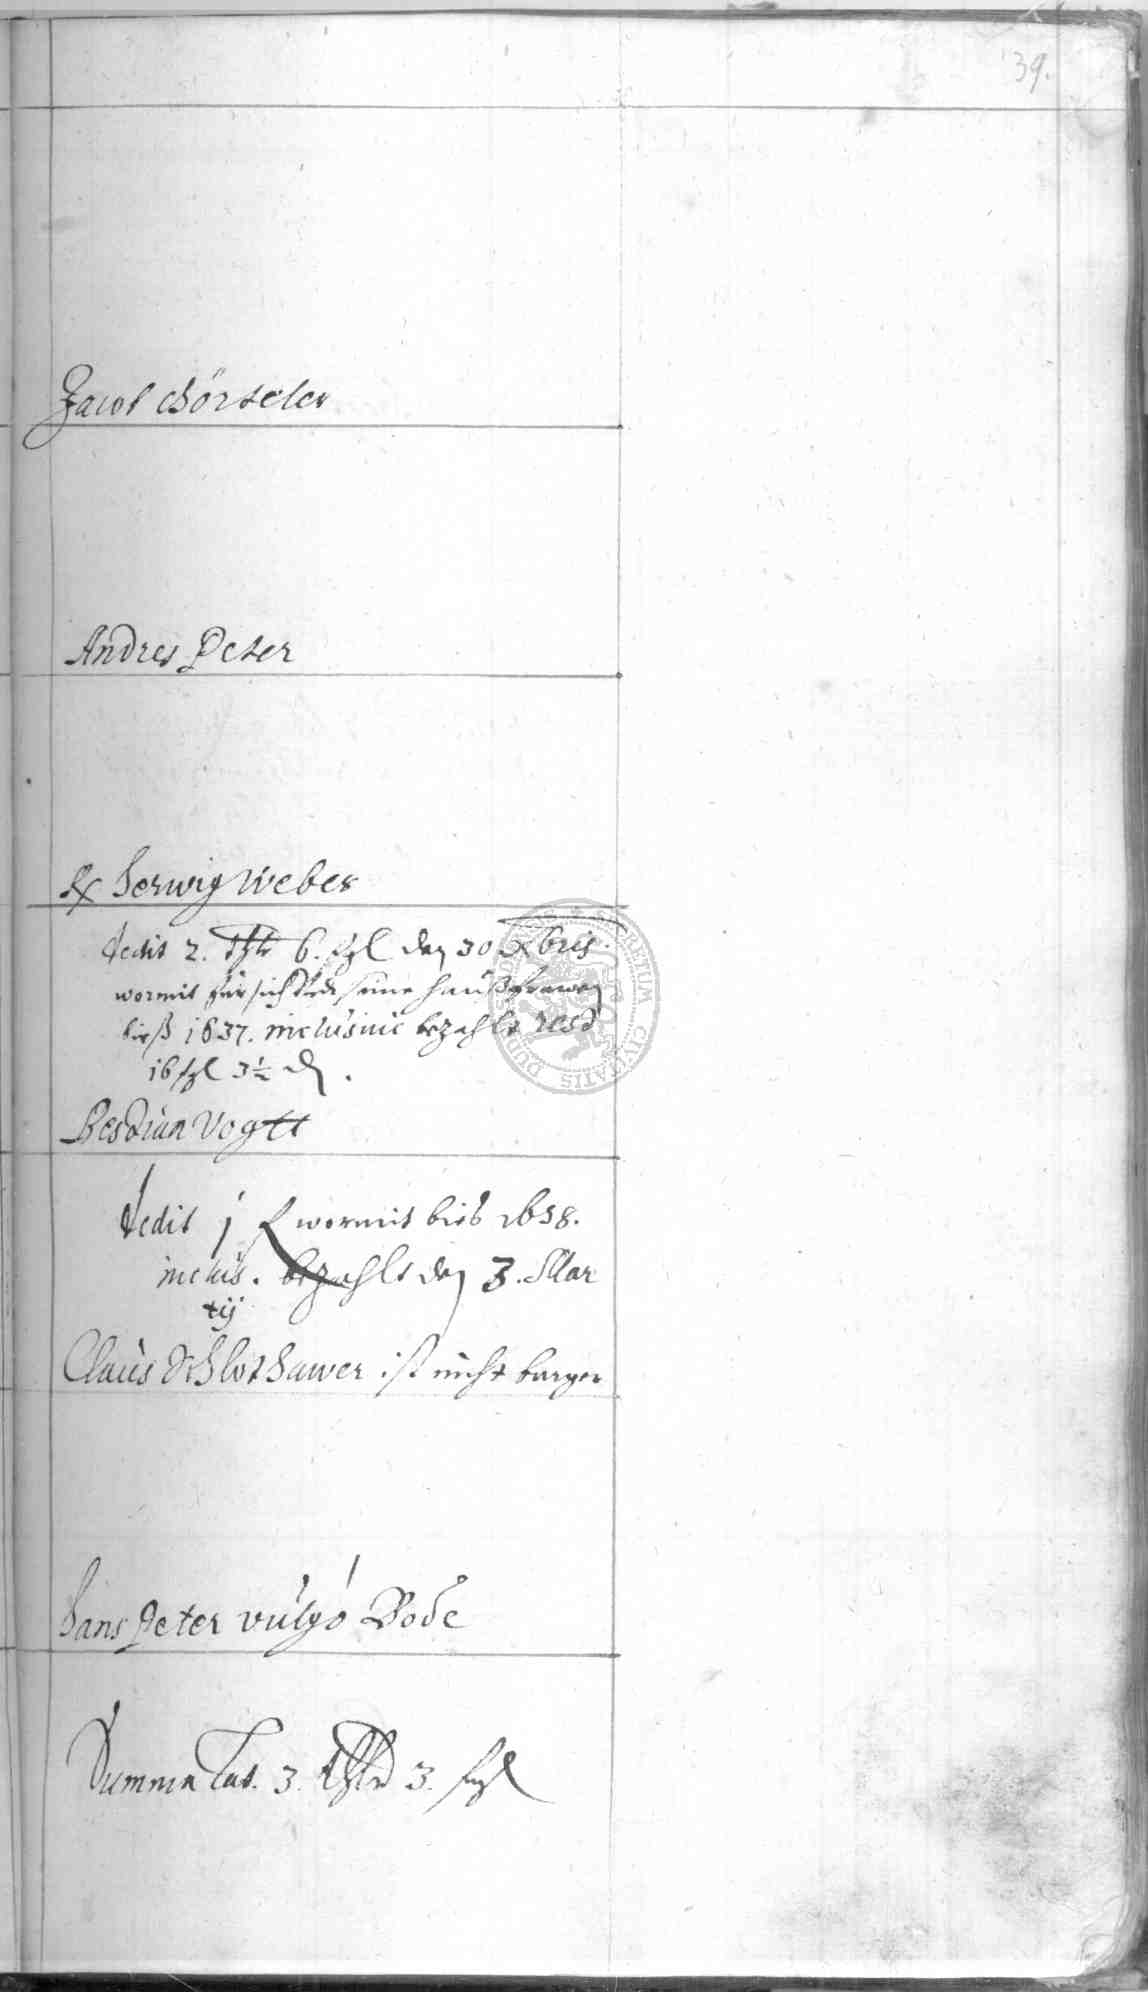 39.
Jacob Börteler
Andres Peter
Herwig Weber
dedit 2. thlr 6. sgl den 30 Xbris.
wormit für sich vndt seine haußfrawen
bieß 1637. inclusiue bezahlt rest
16 sgl 3½ ₰.
Bestian Vogtt
dedit j f wormit bieß 1638.
inclus. bezahlt den 3. Mar
tij
Claus Schlothawer ist nicht burger
Hans Peter vulgò Bode
Summa Lat. 3. thlr 3. sgl
SECRETUM CIVITATIS DUDERSTADENSIS